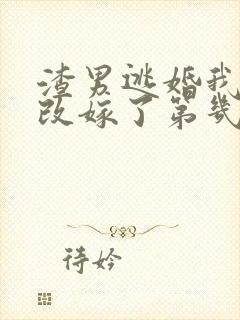 渣男逃婚我
改嫁了第几
待妗